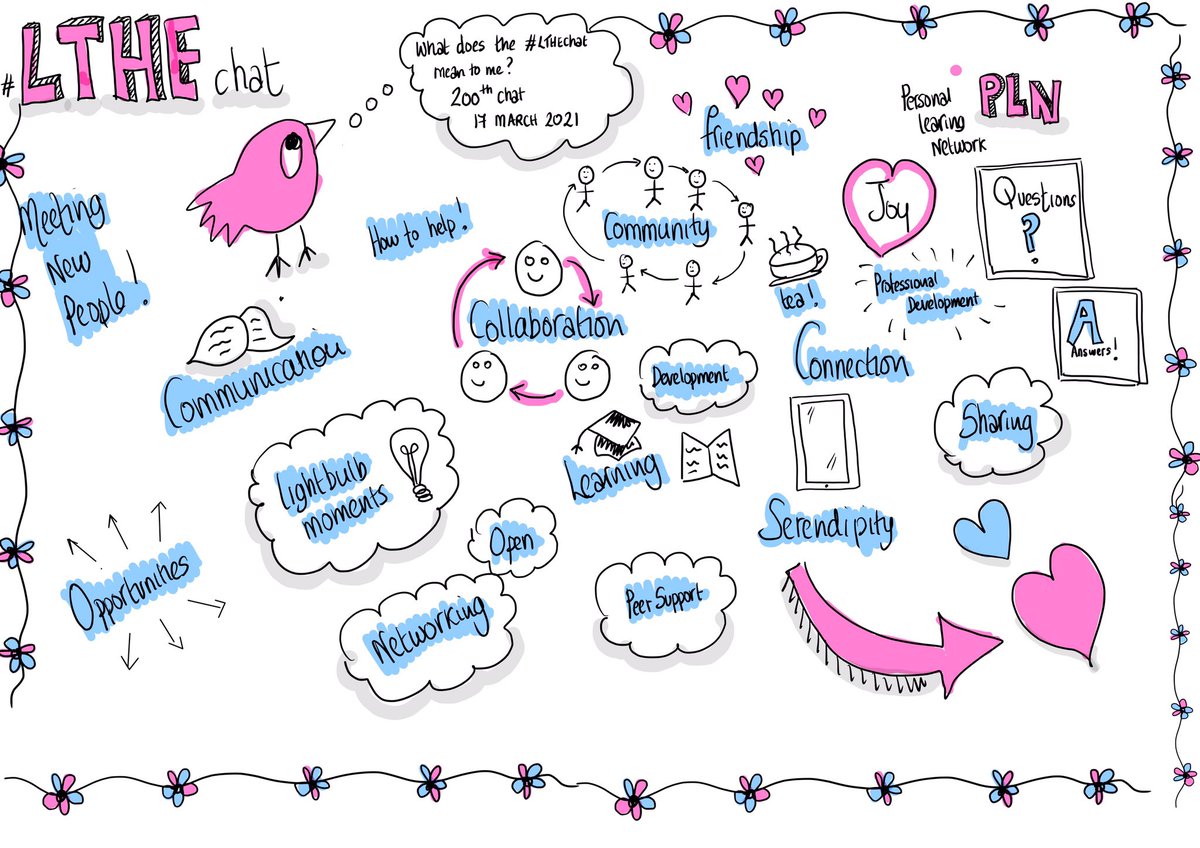 #LTHE chat
What does the #LTHEchat
mean to me?
200th chat
17 MARCH 2021
Friendship
Personal
Learing
Network
PLN
Meeting
New
People!
How to help!
Community
Joy
Questions
?
tea!
Professional
Development
A
Answers!
Collaboration
Connection
Communication
Development
Sharing
Lightbulb
moments
Learning
Serendipity
Open
Opportunities
Networking
Peer Support